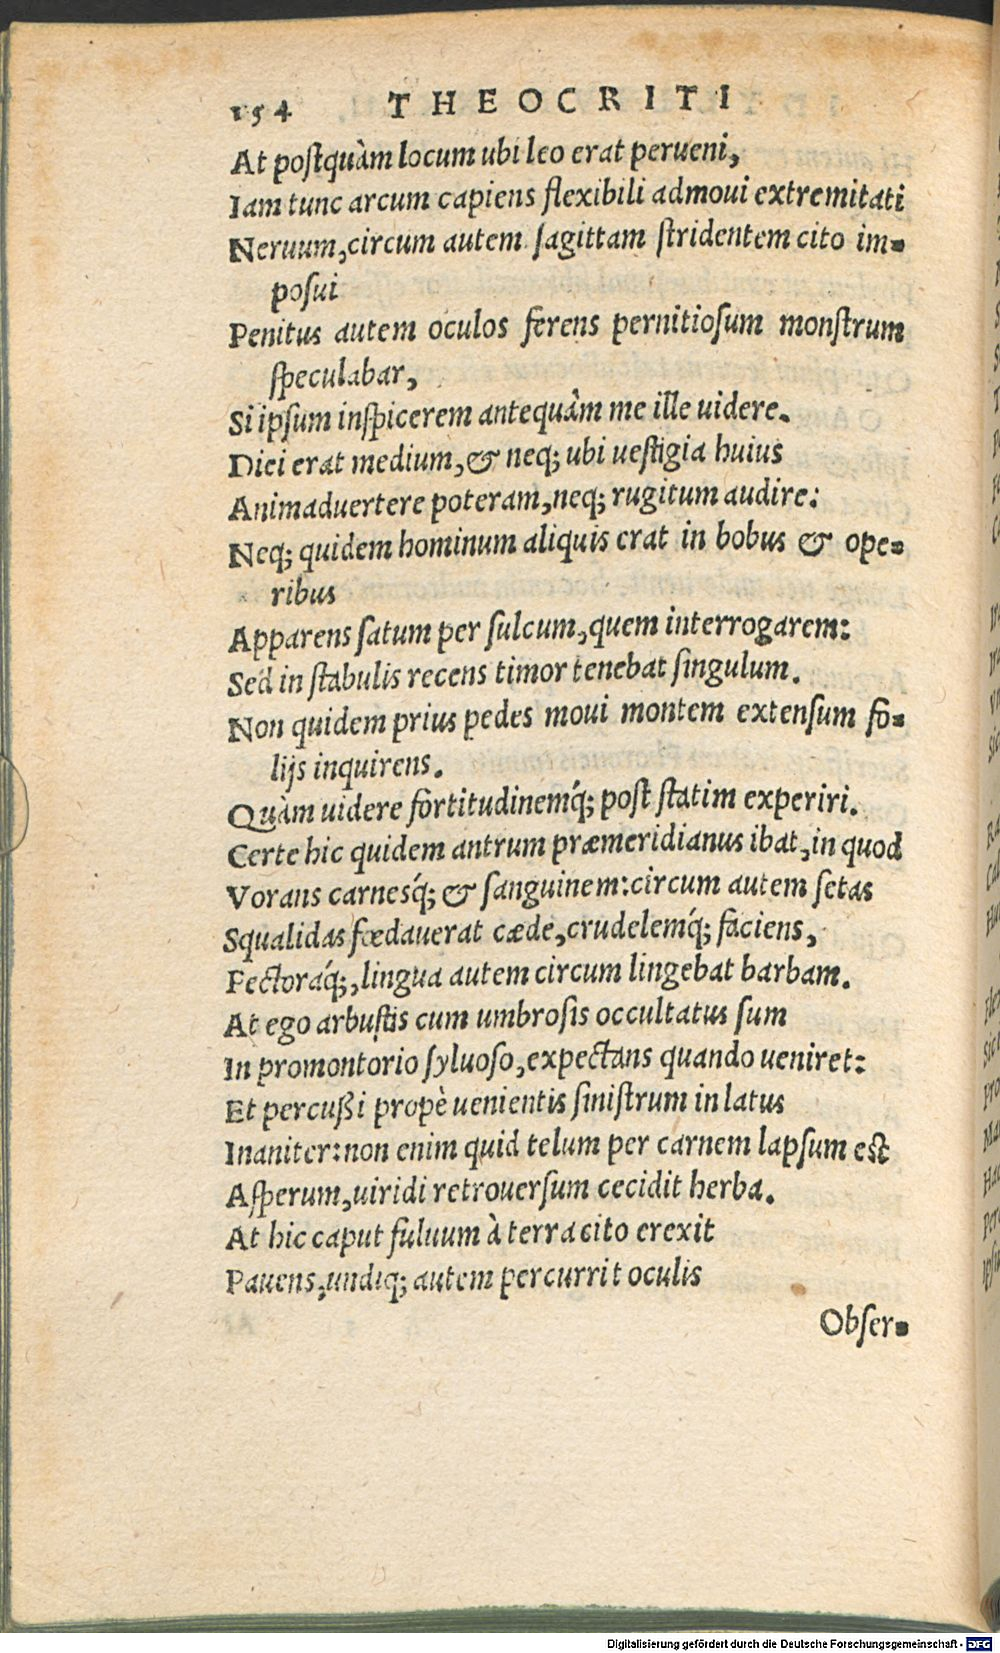 154 THEOCRITI
At postquàm locum ubi leo erat perueni,
Iam tunc arcum capiens flexibili admoui extremitati
Neruum, circum autem sagittam stridentem cito im-
posui
Penitus autem oculos ferens pernitiosum monstrum
speculabar,
Si ipsum inspicerem antequàm me ille uidere.
Diei erat medium, & neq; ubi uestigia huius
Animaduertere poteram, neq; rugitum audire:
Neq; quidem hominum aliquis erat in bobus & ope-
ribus
Apparens satum per sulcum, quem interrogarem:
Sed in stabulis recens timor tenebat singulum.
Non quidem prius pedes moui montem extensum fo-
lijs inquirens.
Quàm uidere fortitudinemq́; post statim experiri.
Certe hic quidem antrum præmeridianus ibat, in quod
Vorans carnesq́; & sanguinem: circum autem setas
Squalidas fœdauerat cæde, crudelemq́; faciens,
Pectoraq́;, lingua autem circum lingebat barbam.
At ego arbustis cum umbrosis occultatus sum
In promontorio syluoso, expectans quando ueniret:
Et percußi propè uenientis sinistrum in latus
Inaniter: non enim quid telum per carnem lapsum est
Asperum, uiridi retrouersum cecidit herba.
At hic caput fuluum à terra cito erexit
Pauens, undiq; autem percurrit oculis
Obser-
Digitalisierung gefördert durch die Deutsche Forschungsgemeinschaft - DFG